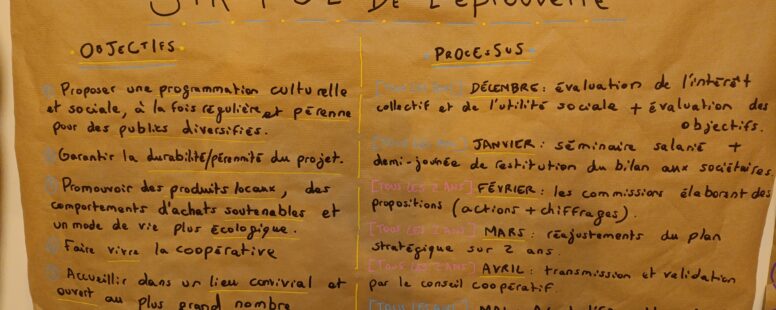 DE L'éprouvette
OBJECTIFS
Proposer une programmation culturelle
et sociale, à la fois régulière et pérenne
pour des publics diversifiés.
Garantir la durabilité/pérennité du projet.
Promouvoir des produits locaux, des
comportements d'achats soutenables et
un mode de vie plus écologique.
Faire vivre la coopérative
Accueillir dans un lieu convivial et
ouvert au plus grand nombre
PROCESSUS
[TOUS LES ANS] DÉCEMBRE : évaluation de l'intérêt
collectif et de l'utilité sociale + évaluation des
objectifs.
[TOUS LES ANS] JANVIER : séminaire salarié +
demi-journée de restitution du bilan aux sociétaires
[TOUS LES 2 ANS] FÉVRIER : les commissions élaborent des
propositions (actions + chiffrages).
[TOUS LES 2 ANS] MARS : réajustements du plan
stratégique sur 2 ans.
[TOUS LES 2 ANS] AVRIL : transmission et validation
par le conseil coopératif.